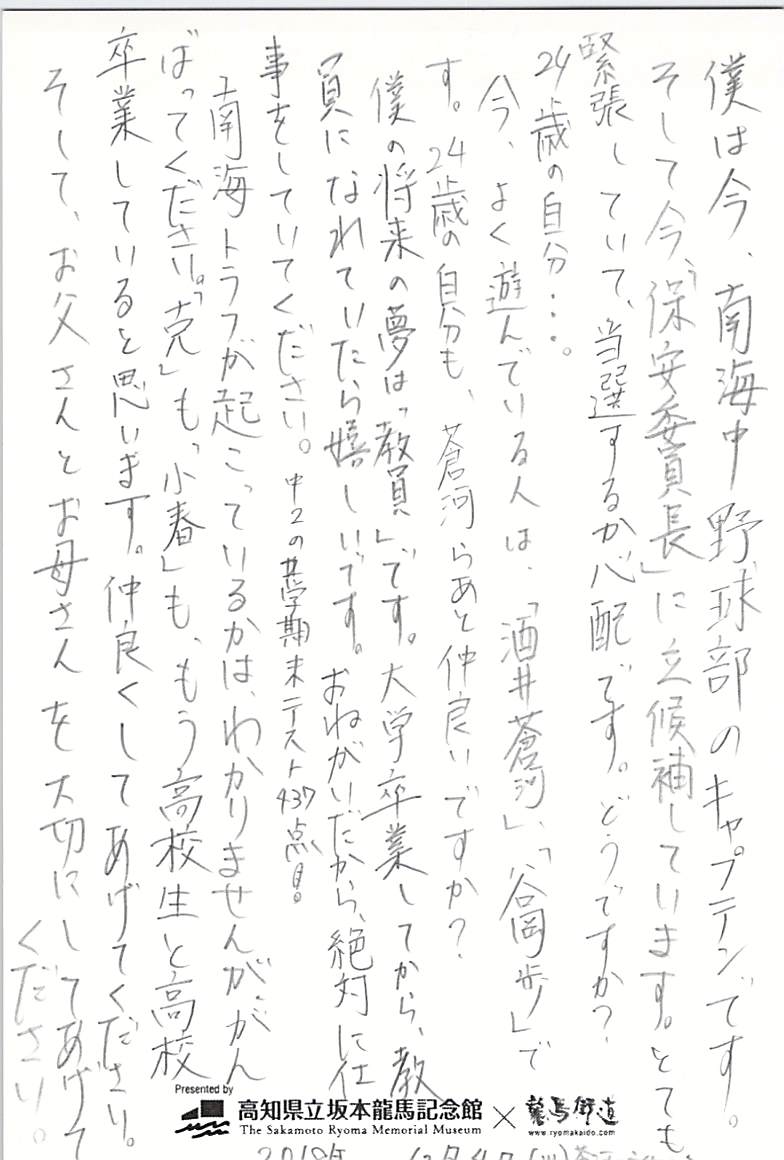 僕は今、南海中野球部のキャプテンです。
そして今、「保安委員長」に立候補しています。とても
緊張していて、当選するか心配です。どうですか？
24歳の自分…。
今、よく遊んでいる人は、「酒井蒼河」、「谷岡歩」で
す。24歳の自分も、蒼河らあと仲良いですか？
僕の将来の夢は「教員」です。大学卒業してから、教
員になれていたら嬉しいです。おねがいだから、絶対に仕
事をしていてください。中2の共学期末テスト437点。
南海トラフが起こっているかは、わかりませんが、がん
ばってください。「克」も、「小春」も、もう高校生と高校
卒業していると思います。仲良くしてあげてください。
そして、お父さんとお母さんを大切にしてあげて
ください。
Presented by
高知県立坂本龍馬記念館
The Sakamoto Ryoma Memorial Museum
×
龍馬街道
www.ryomakaido.com
2019年